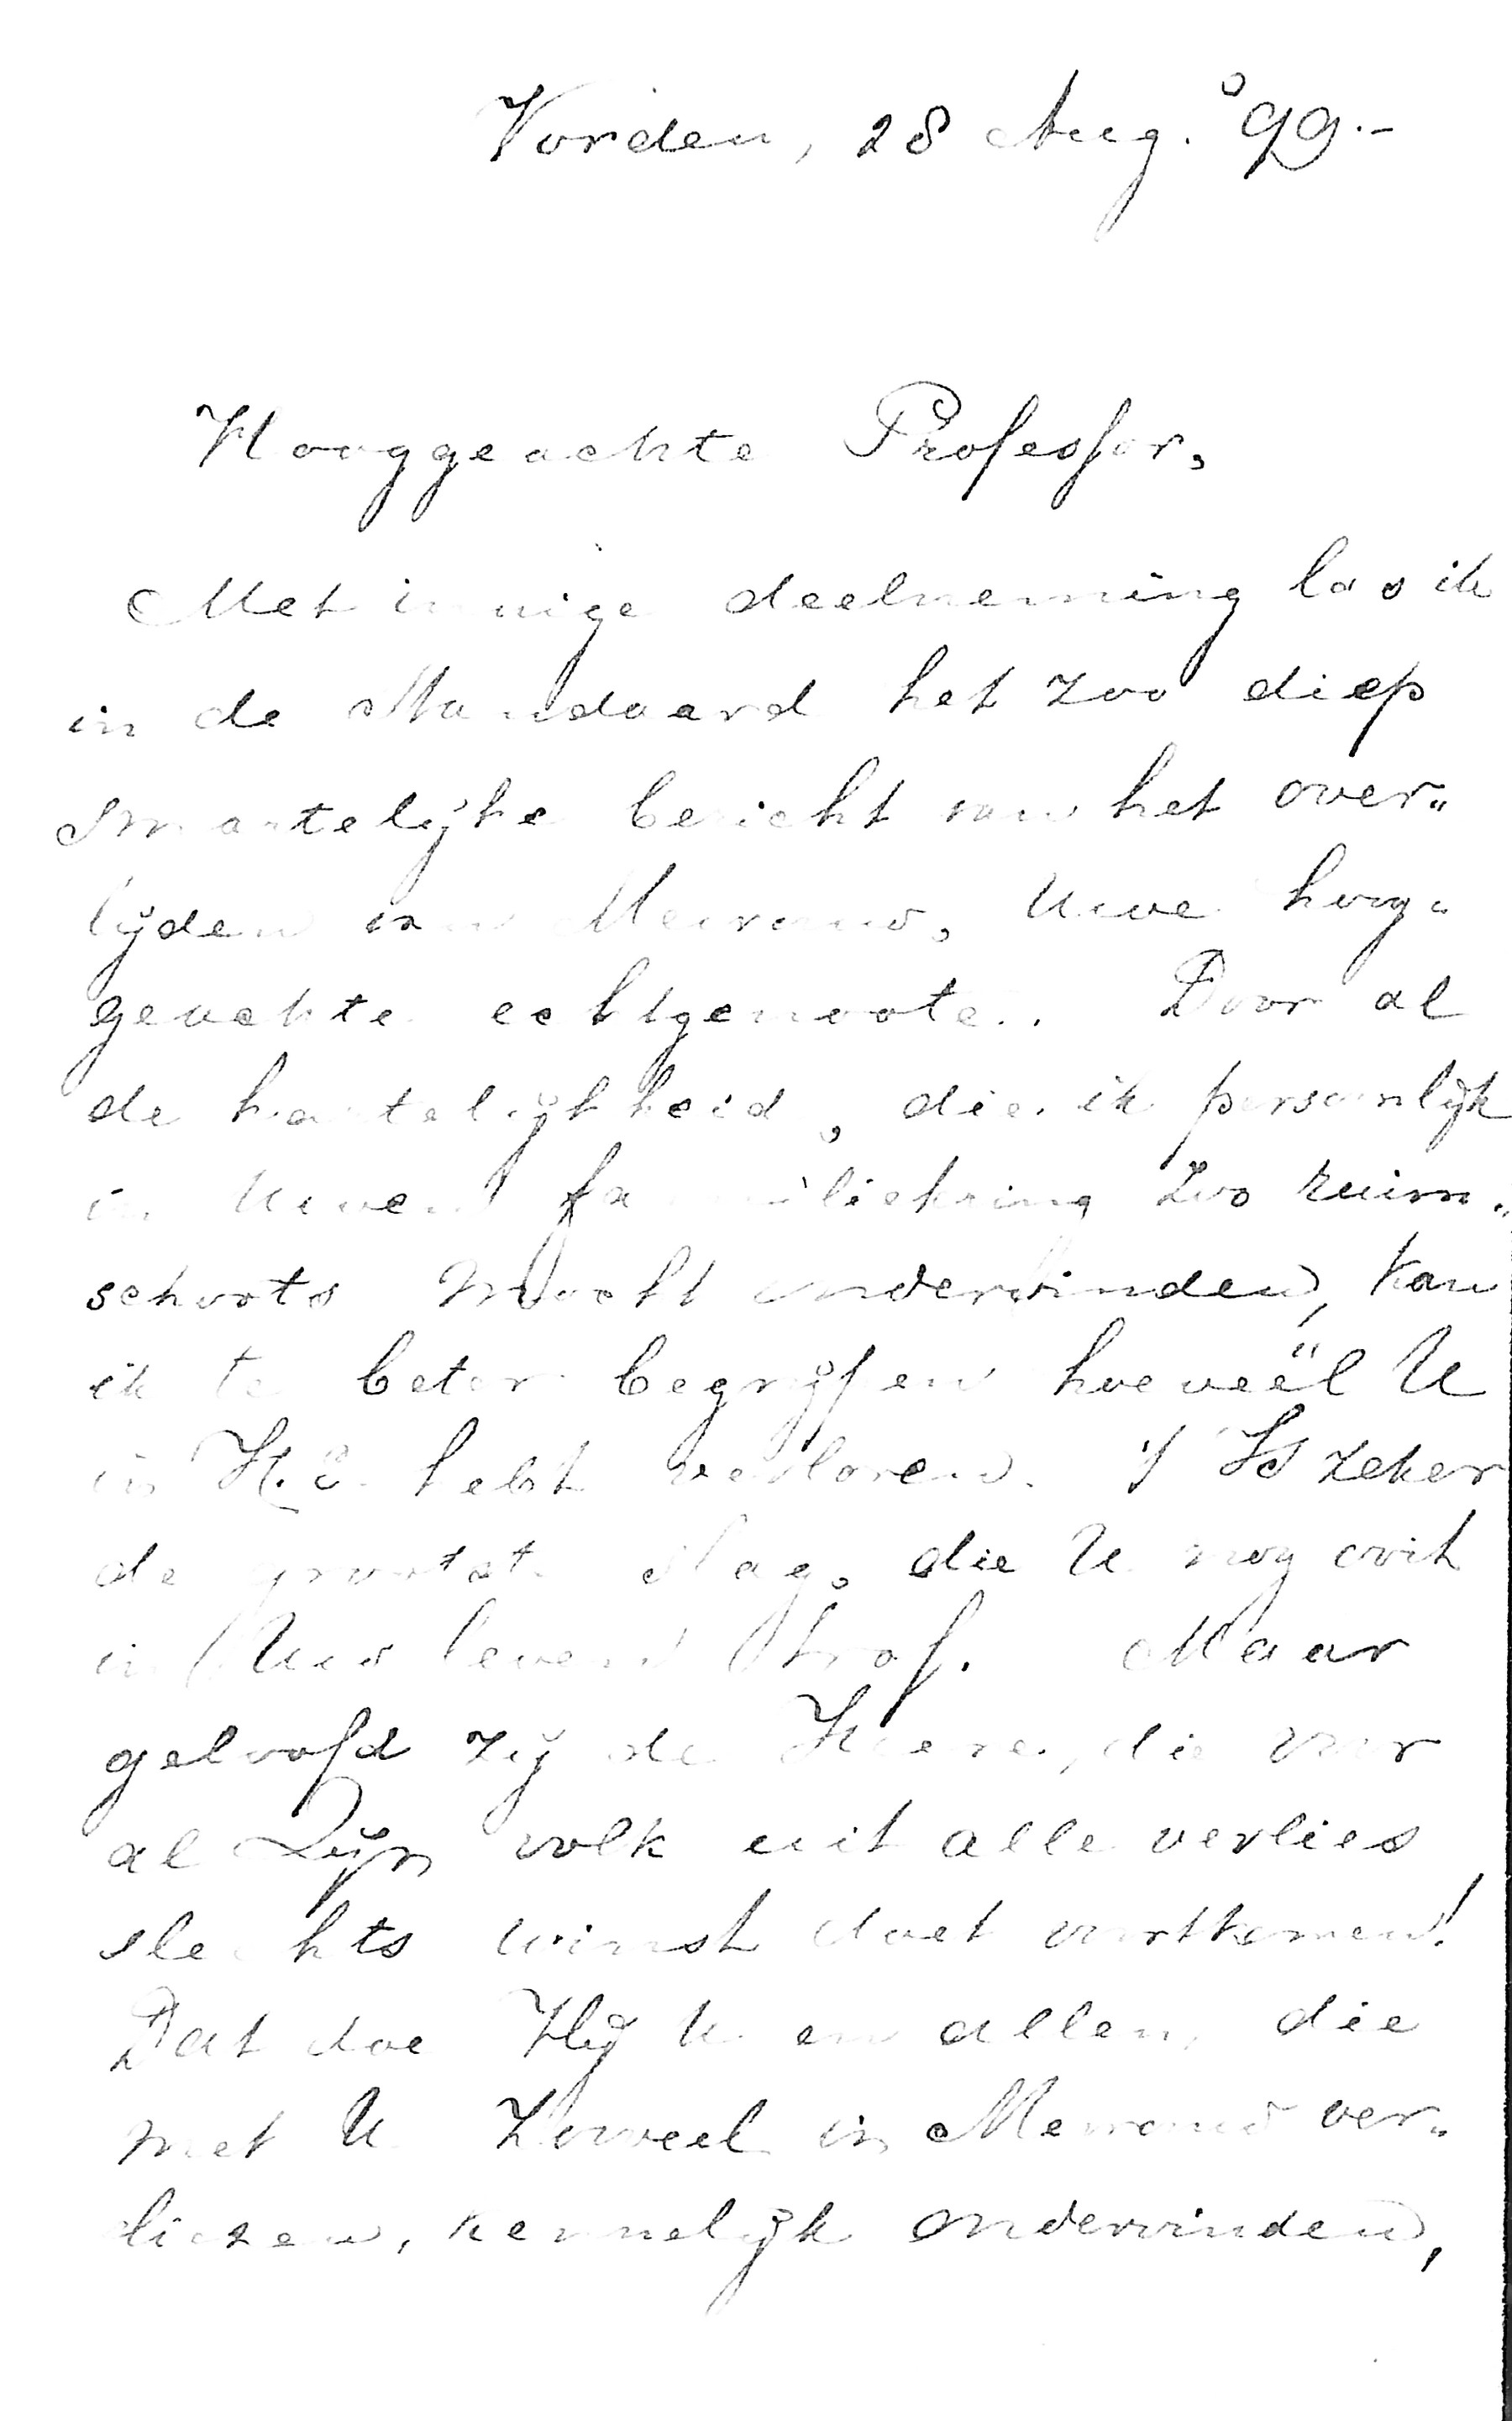 Vorden, 28 Aug. '99.-
Hooggeachte Professor,
Met innige deelneming las ik
in de Standaard het zoo diep
smartelijke bericht van het over„
lijden van Mevrouw, Uwe hoog„
geachte echtgenoote. Door al
de hartelijkheid, die ik persoonlijk
in Uwen familiekring zoo ruim„
schoots mocht ondervinden, kan
ik te beter begrijpen hoeveel U
in H.E. hebt verloren. 't Is zeker
de grootste slag, die U nog ooit
in Uw leven trof. Maar
geloofd zij de Heere, die voor
al Zijn volk uit alle verlies
slechts winst doet voortkomen!
Dat doe Hij U en allen, die
met U zooveel in Mevrouw ver„
liezen, kennelijk ondervinden,